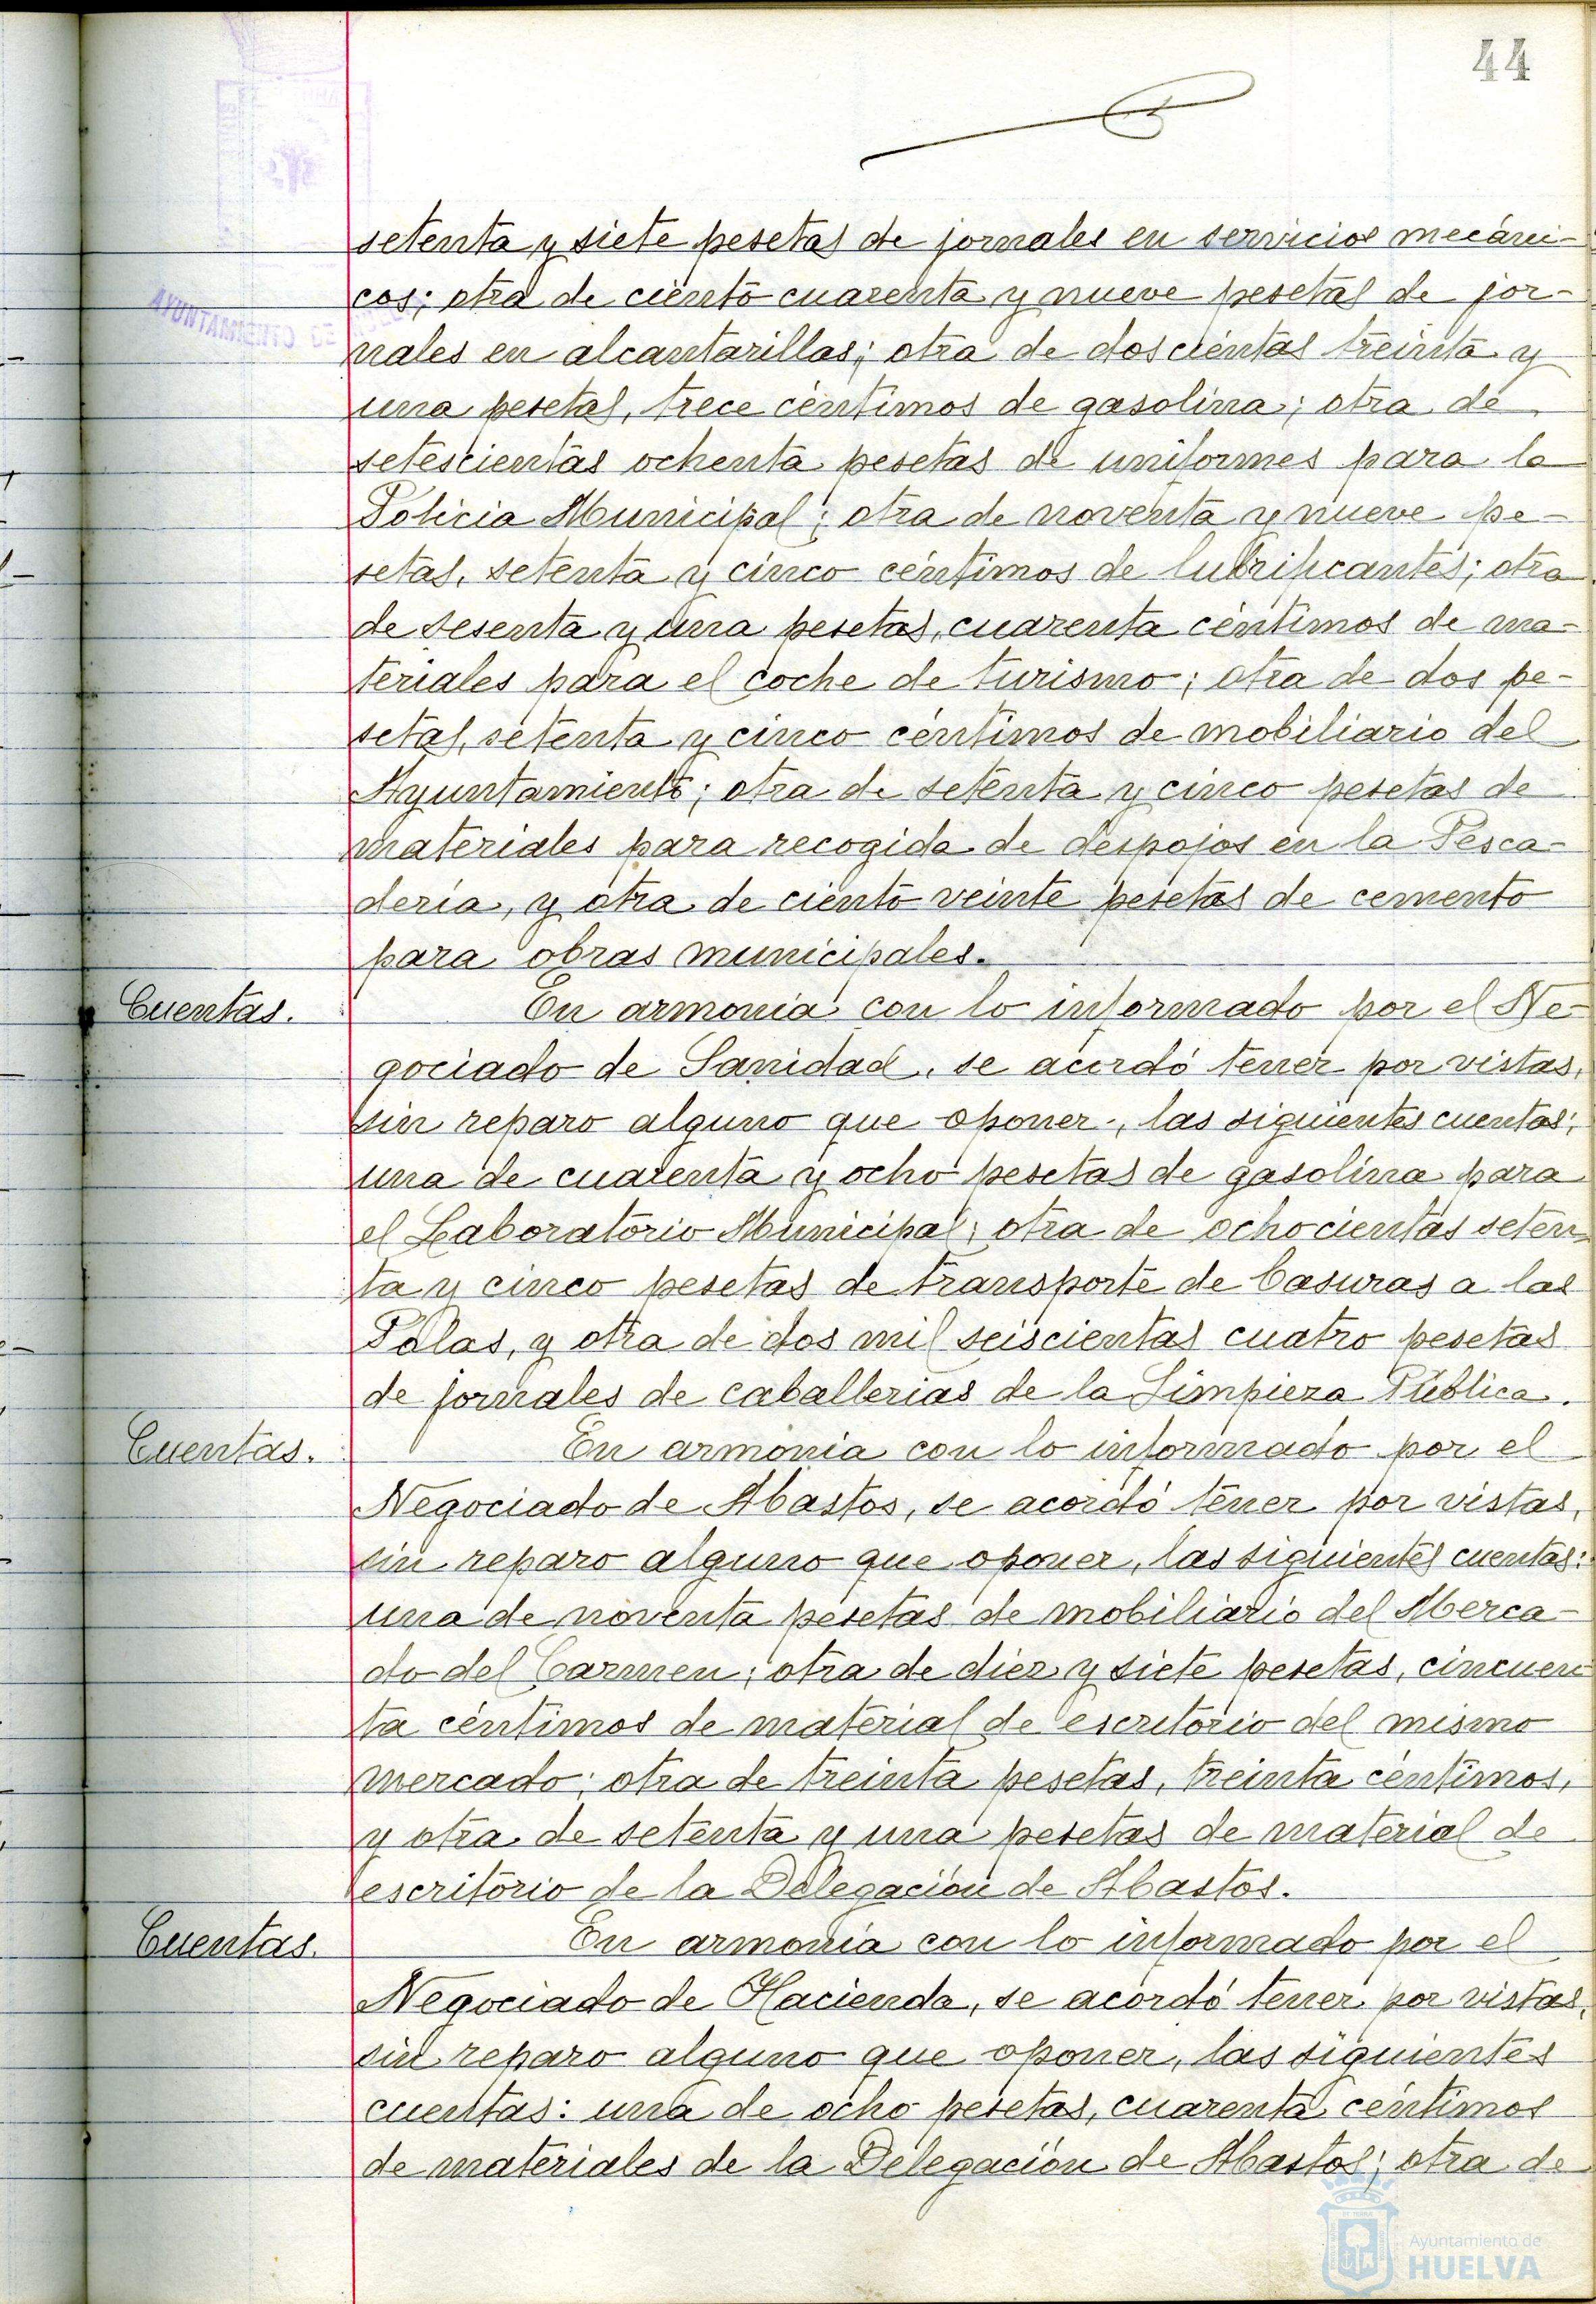 44
setenta y siete pesetas de jornales en servicios mecáni-
cos; otra de ciento cuarenta y nueve pesetas de jor-
nales en alcantarillas; otra de doscientas treinta y
una pesetas, trece céntimos de gasolina; otra de
setescientas ochenta pesetas de uniformes para la
Policia Municipal; otra de noventa y nueve pe-
setas, setenta y cinco céntimos de lubrificantes; otra
de sesenta y una pesetas, cuarenta céntimos de ma-
teriales para el coche de turismo; otra de dos pe-
setas, setenta y cinco céntimos de mobiliario del
Ayuntamiento; otra de setenta y cinco pesetas de
materiales para recogida de despojos en la Pesca-
dería, y otra de ciento veinte pesetas de cemento
para obras municipales.
Cuentas.
En armonia con lo informado por el Ne-
gociado de Sanidad, se acordó tener por vistas,
sin reparo alguno que oponer, las siguientes cuentas:
una de cuarenta y ocho pesetas de gasolina para
el Laboratorio Municipal; otra de ochocientas seten-
ta y cinco pesetas de transporte de basuras a las
Palas, y otra de dos mil seiscientas cuatro pesetas
de jornales de caballerias de la Limpieza Pública.
Cuentas.
En armonia con lo informado por el
Negociado de Abastos, se acordó tener por vistas,
sin reparo alguno que oponer, las siguientes cuentas:
una de noventa pesetas de mobiliario del Merca-
do del Carmen; otra de diez y siete pesetas, cincuen
ta céntimos de material de escritorio del mismo
mercado; otra de treinta pesetas, treinta céntimos,
y otra de setenta y una pesetas de material de
escritorio de la Delegación de Abastos.
Cuentas.
En armonia con lo informado por el
Negociado de Hacienda, se acordó tener por vistas,
sin reparo alguno que oponer, las siguientes
cuentas: una de ocho pesetas, cuarenta céntimos
de materiales de la Delegación de Abastos; otra de
AYUNTAMIENTO DE
Ayuntamiento de
HUELVA